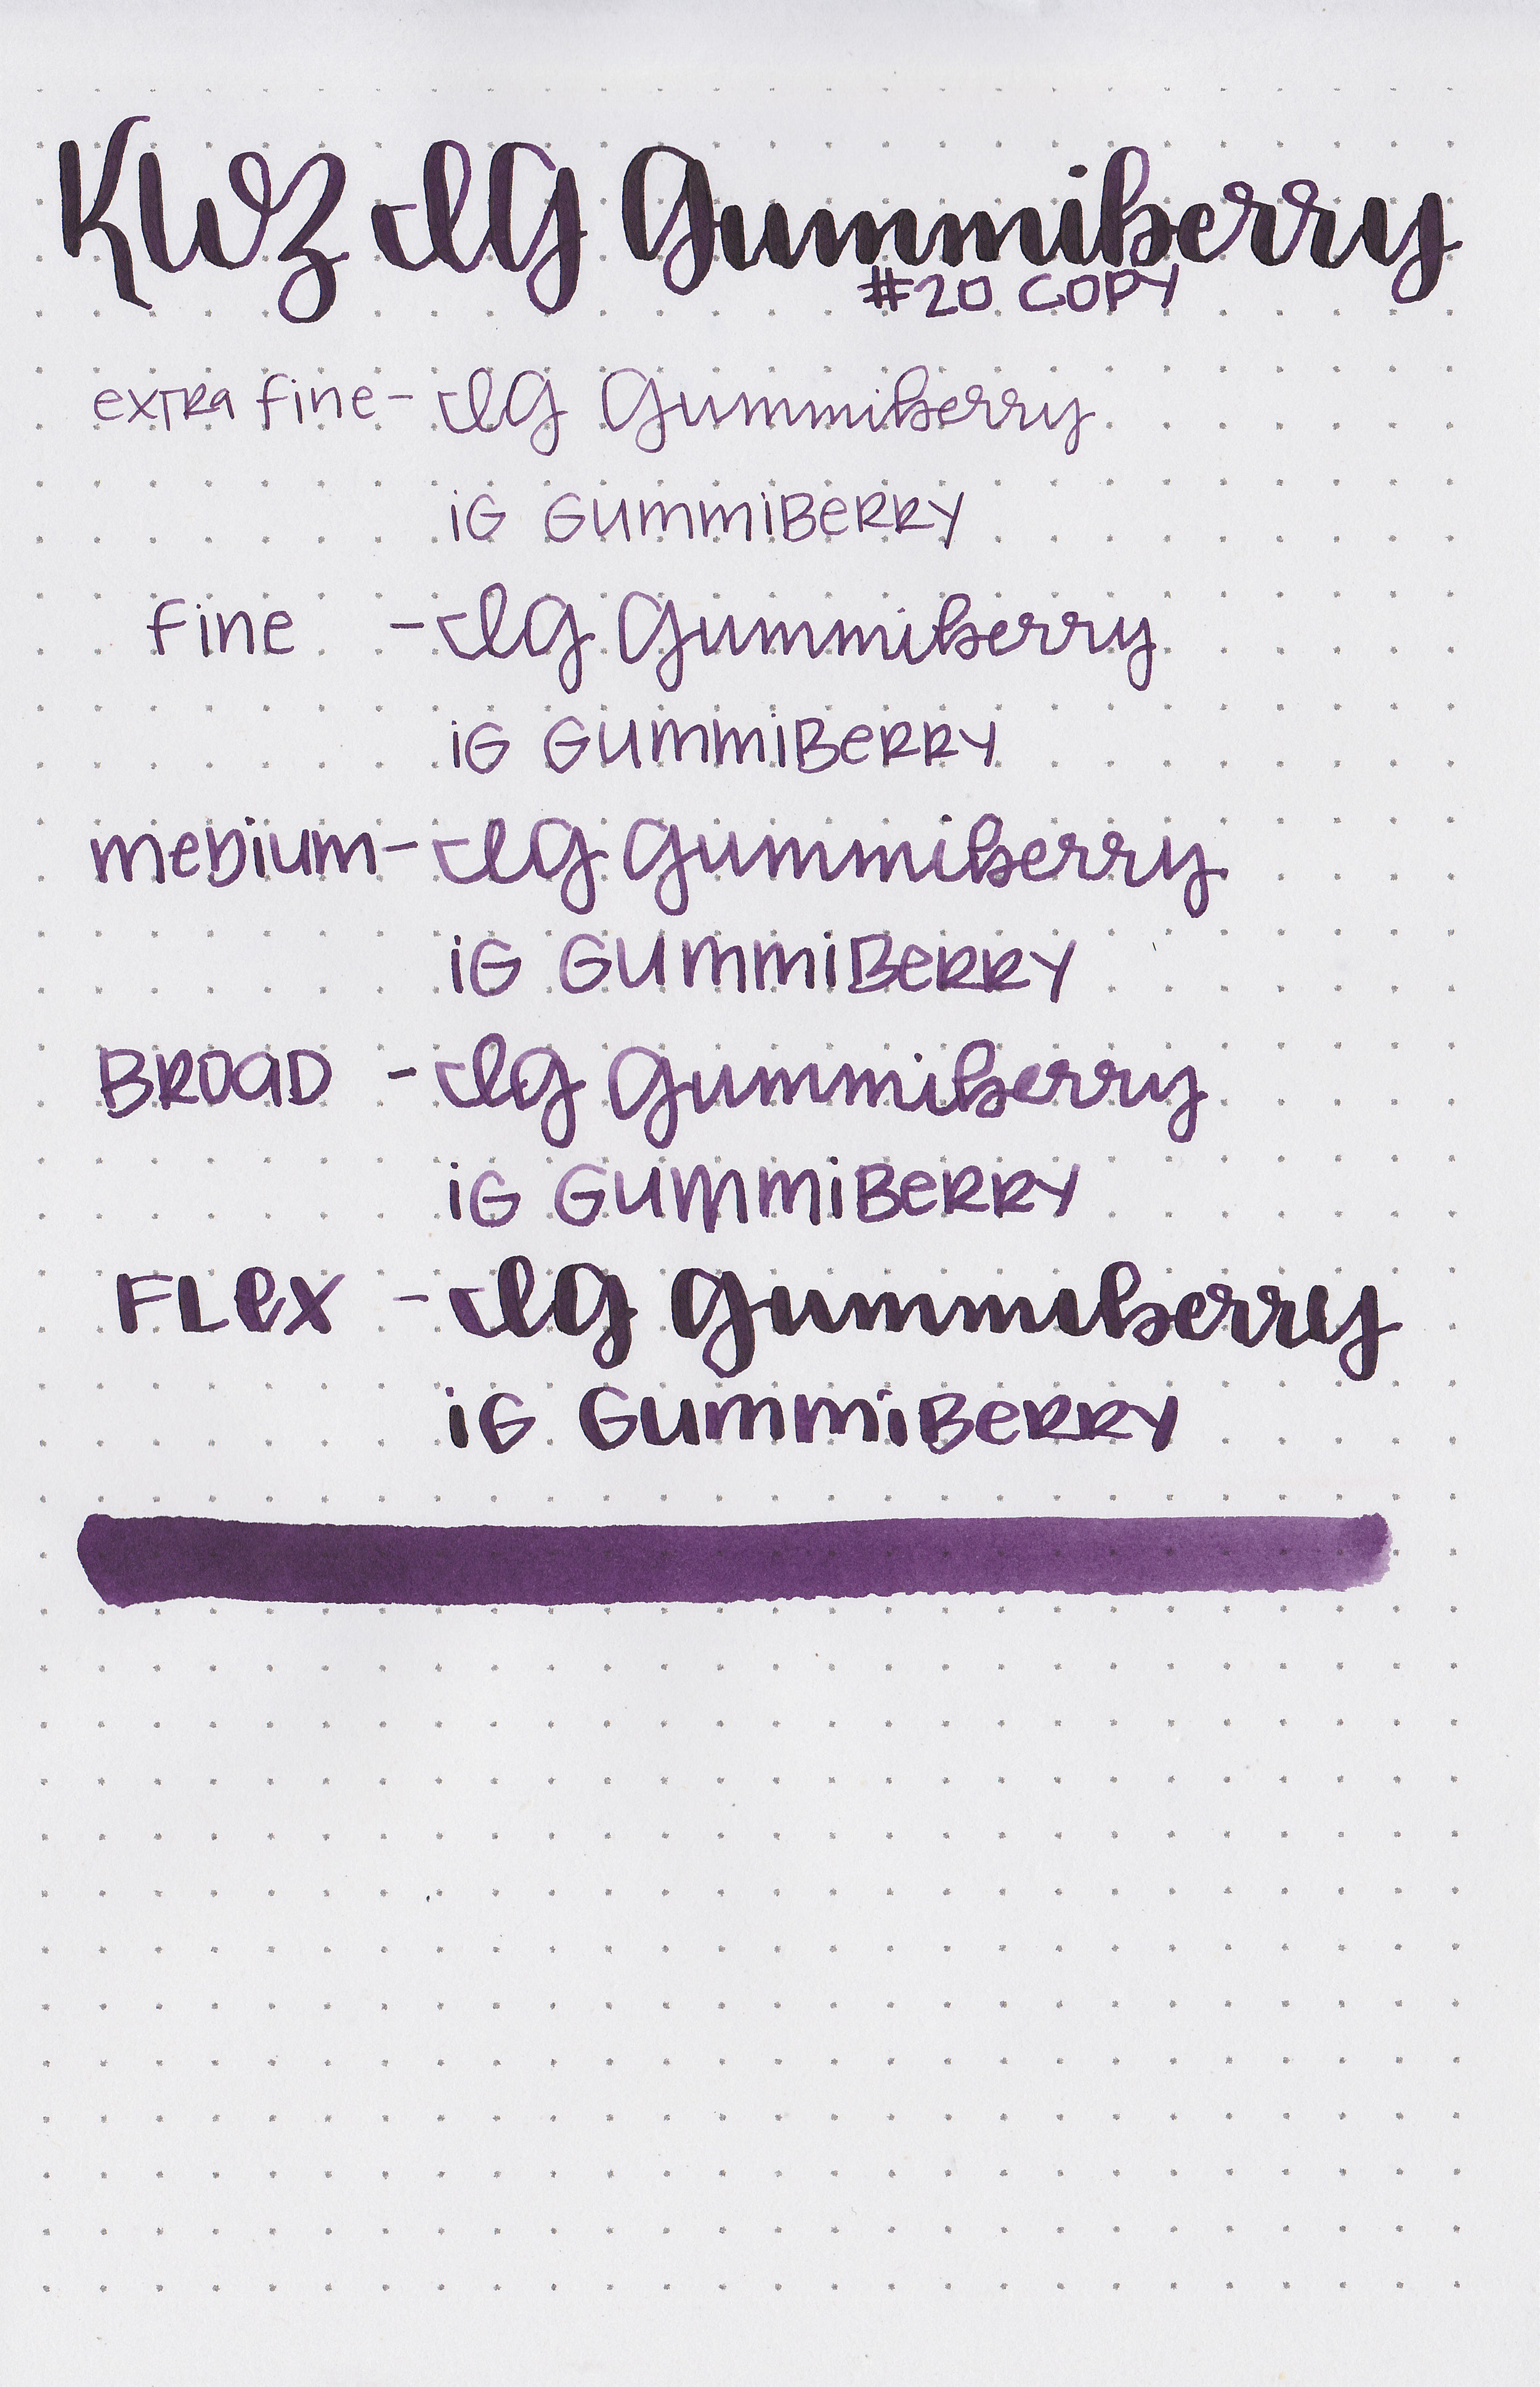 KWZ IG Gummiberry
#20 COPY
extra fine - IG Gummiberry
iG GummiBerry
fine - IG Gummiberry
iG GummiBerry
medium - IG Gummiberry
iG GummiBerry
Broad - IG Gummiberry
iG GummiBerry
Flex - IG Gummiberry
iG GummiBerry